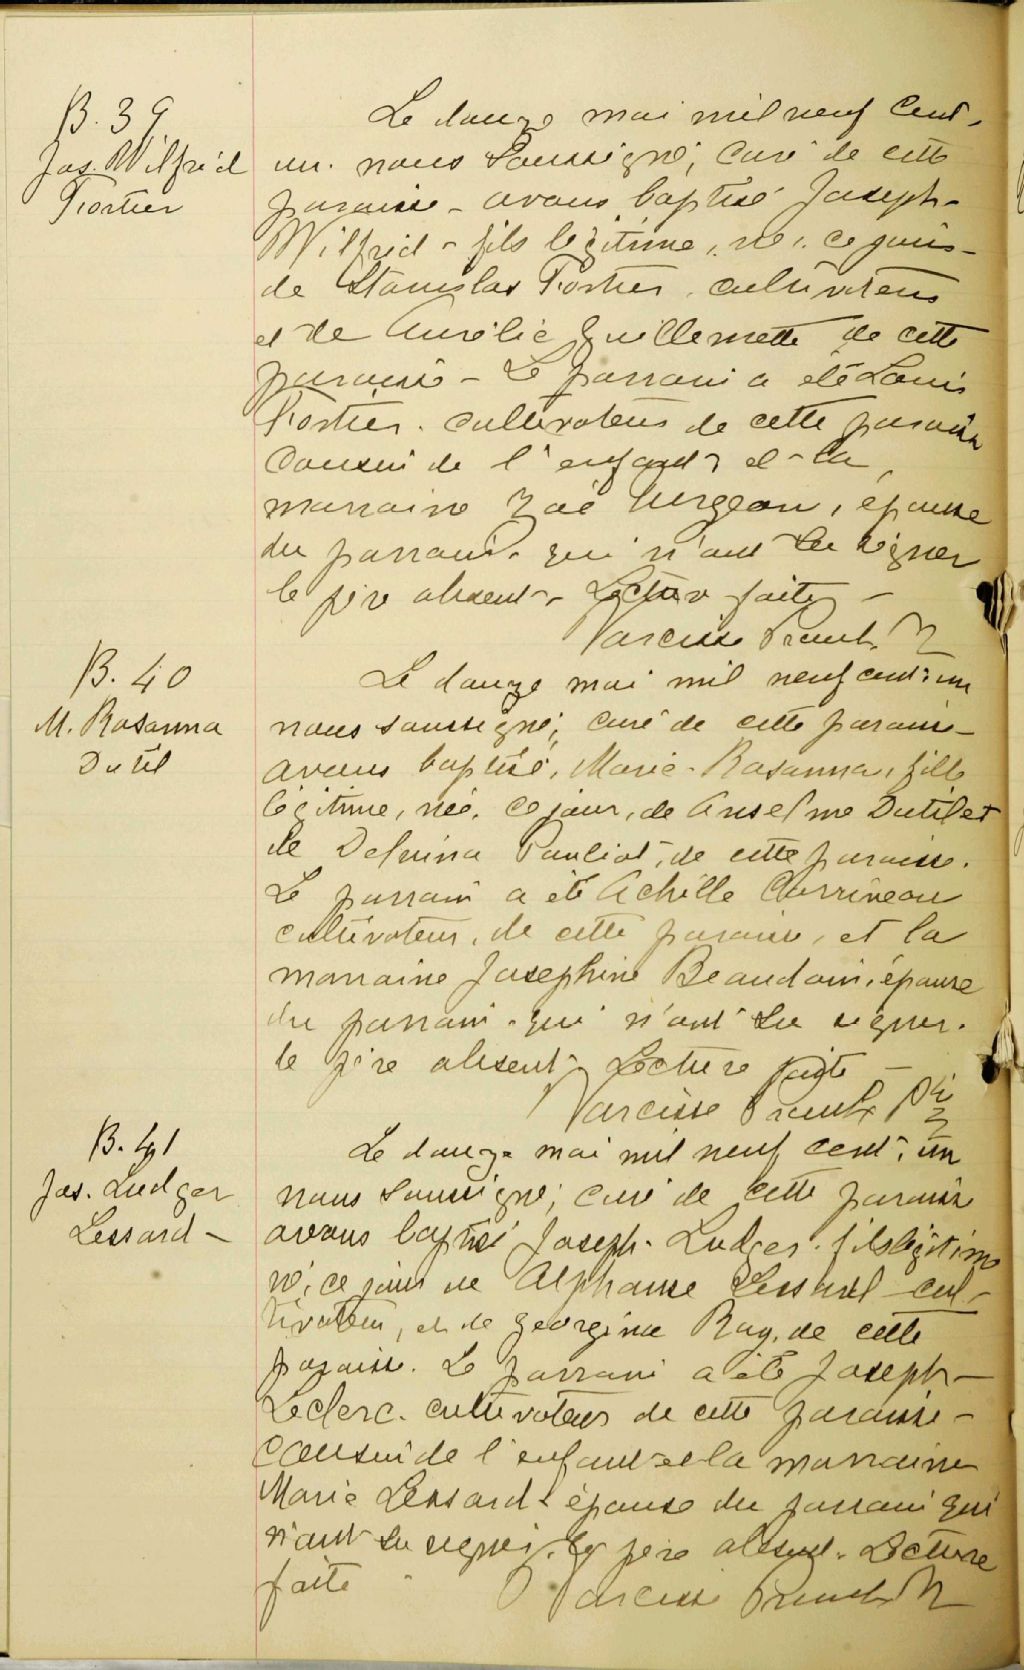 B. 39
Jos. Wilfrid
Fortier
Le douze mai mil neuf cent.
un. nous soussigné, curé de cette
paroisse - avons baptisé Joseph-
Wilfrid - fils légitime, né. ce jour-
de Stanislas Fortier. cultivateur
et de Aurélie Guillemette de cette
paroisse - Le parrain a été Louis
Fortier. cultivateur de cette paroisse
cousin de l'enfant et la
marraine Zoé Turgeon, épouse
du parrain. qui n'ont su signer
le père absent - Lecture faite -
Narcisse Proulx
B. 40
M. Rosanna
Dutil
Le douze mai mil neuf cent: un
nous soussigné, curé de cette paroisse-
avons baptisé, Marie-Rosanna, fille
légitime, née. ce jour, de Anselme Dutil et
de Delvina Pouliot, de cette paroisse.
Le parrain a été Achille
cultivateur, de cette paroisse, et la
marraine Josephine Beaudoin, épouse
du parrain. qui n'ont su signer.
le père absent - Lecture faite -
Narcisse Proulx Ptre
B. 41
Jos. Ludger
Lessard -
Le douze mai mil neuf cent: un
nous soussigné, curé de cette paroisse
avons baptisé Joseph-Ludger. fils légitime
né, ce jour de Alphonse Lessard cul-
tivateur, et de Georgina Roy, de cette
paroisse. Le parrain a été Joseph-
Leclerc. cultivateur de cette paroisse-
cousin de l'enfant et la marraine
Marie Lessard - épouse du parrain qui
n'ont su signer. Le père absent. Lecture
faite
Narcisse Proulx